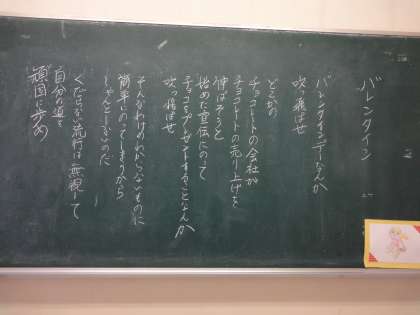 バレンタイン
バレンタインデーなんか
吹っ飛ばせ
どこかの
チョコレートの会社が
チョコレートの売り上げを
伸ばそうと
始めた宣伝にのって
チョコをプレゼントすることなんか
吹っ飛ばせ
そんなわけのわからないものに
簡単にのってしまうから
しゃんとしないのだ
くだらない流行は無視して
自分の道を
頑固に歩め